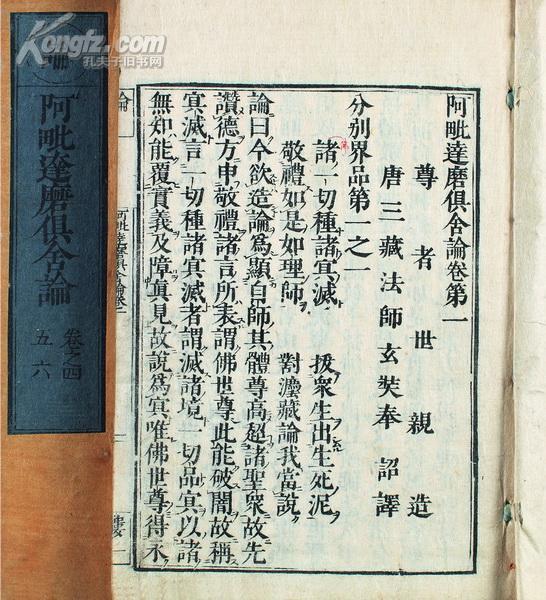 阿毗達磨俱舍論卷第一
尊者世親造
唐三藏法師玄奘奉 詔譯
分別界品第一之一
諸一切種諸冥滅 拔衆生出生死泥
敬禮如是如理師 對灋藏論我當說
論曰今欲造論爲顯自師其體尊高超諸聖衆故先
讚德方申敬禮諸言所表謂佛世尊此能破闇故稱
冥滅言一切種諸冥滅者謂滅諸境一切品冥以諸
無知能覆實義及障眞見故說爲冥唯佛世尊得永
阿毗達磨俱舍論
卷之四
五六
Kongfz.com
孔夫子旧书网